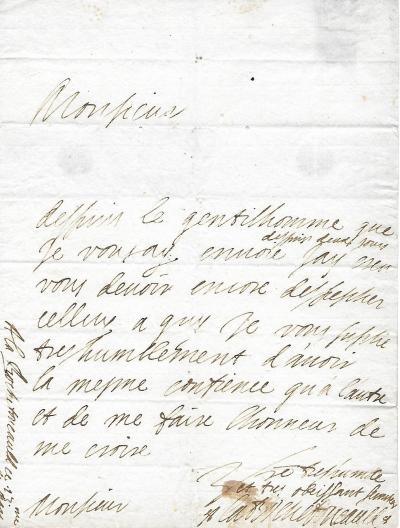 Monsieur
despuis le gentilhomme que
Je vous ay envoie despuis deux jours jay creu
vous devoir encore despecher
celluy a quy Je vous suplie
tres humblement d'avoir
la mesme confience qu a lautre
et de me faire lhonneur de
me croire
Monsieur
tres humble
et tres obeissant